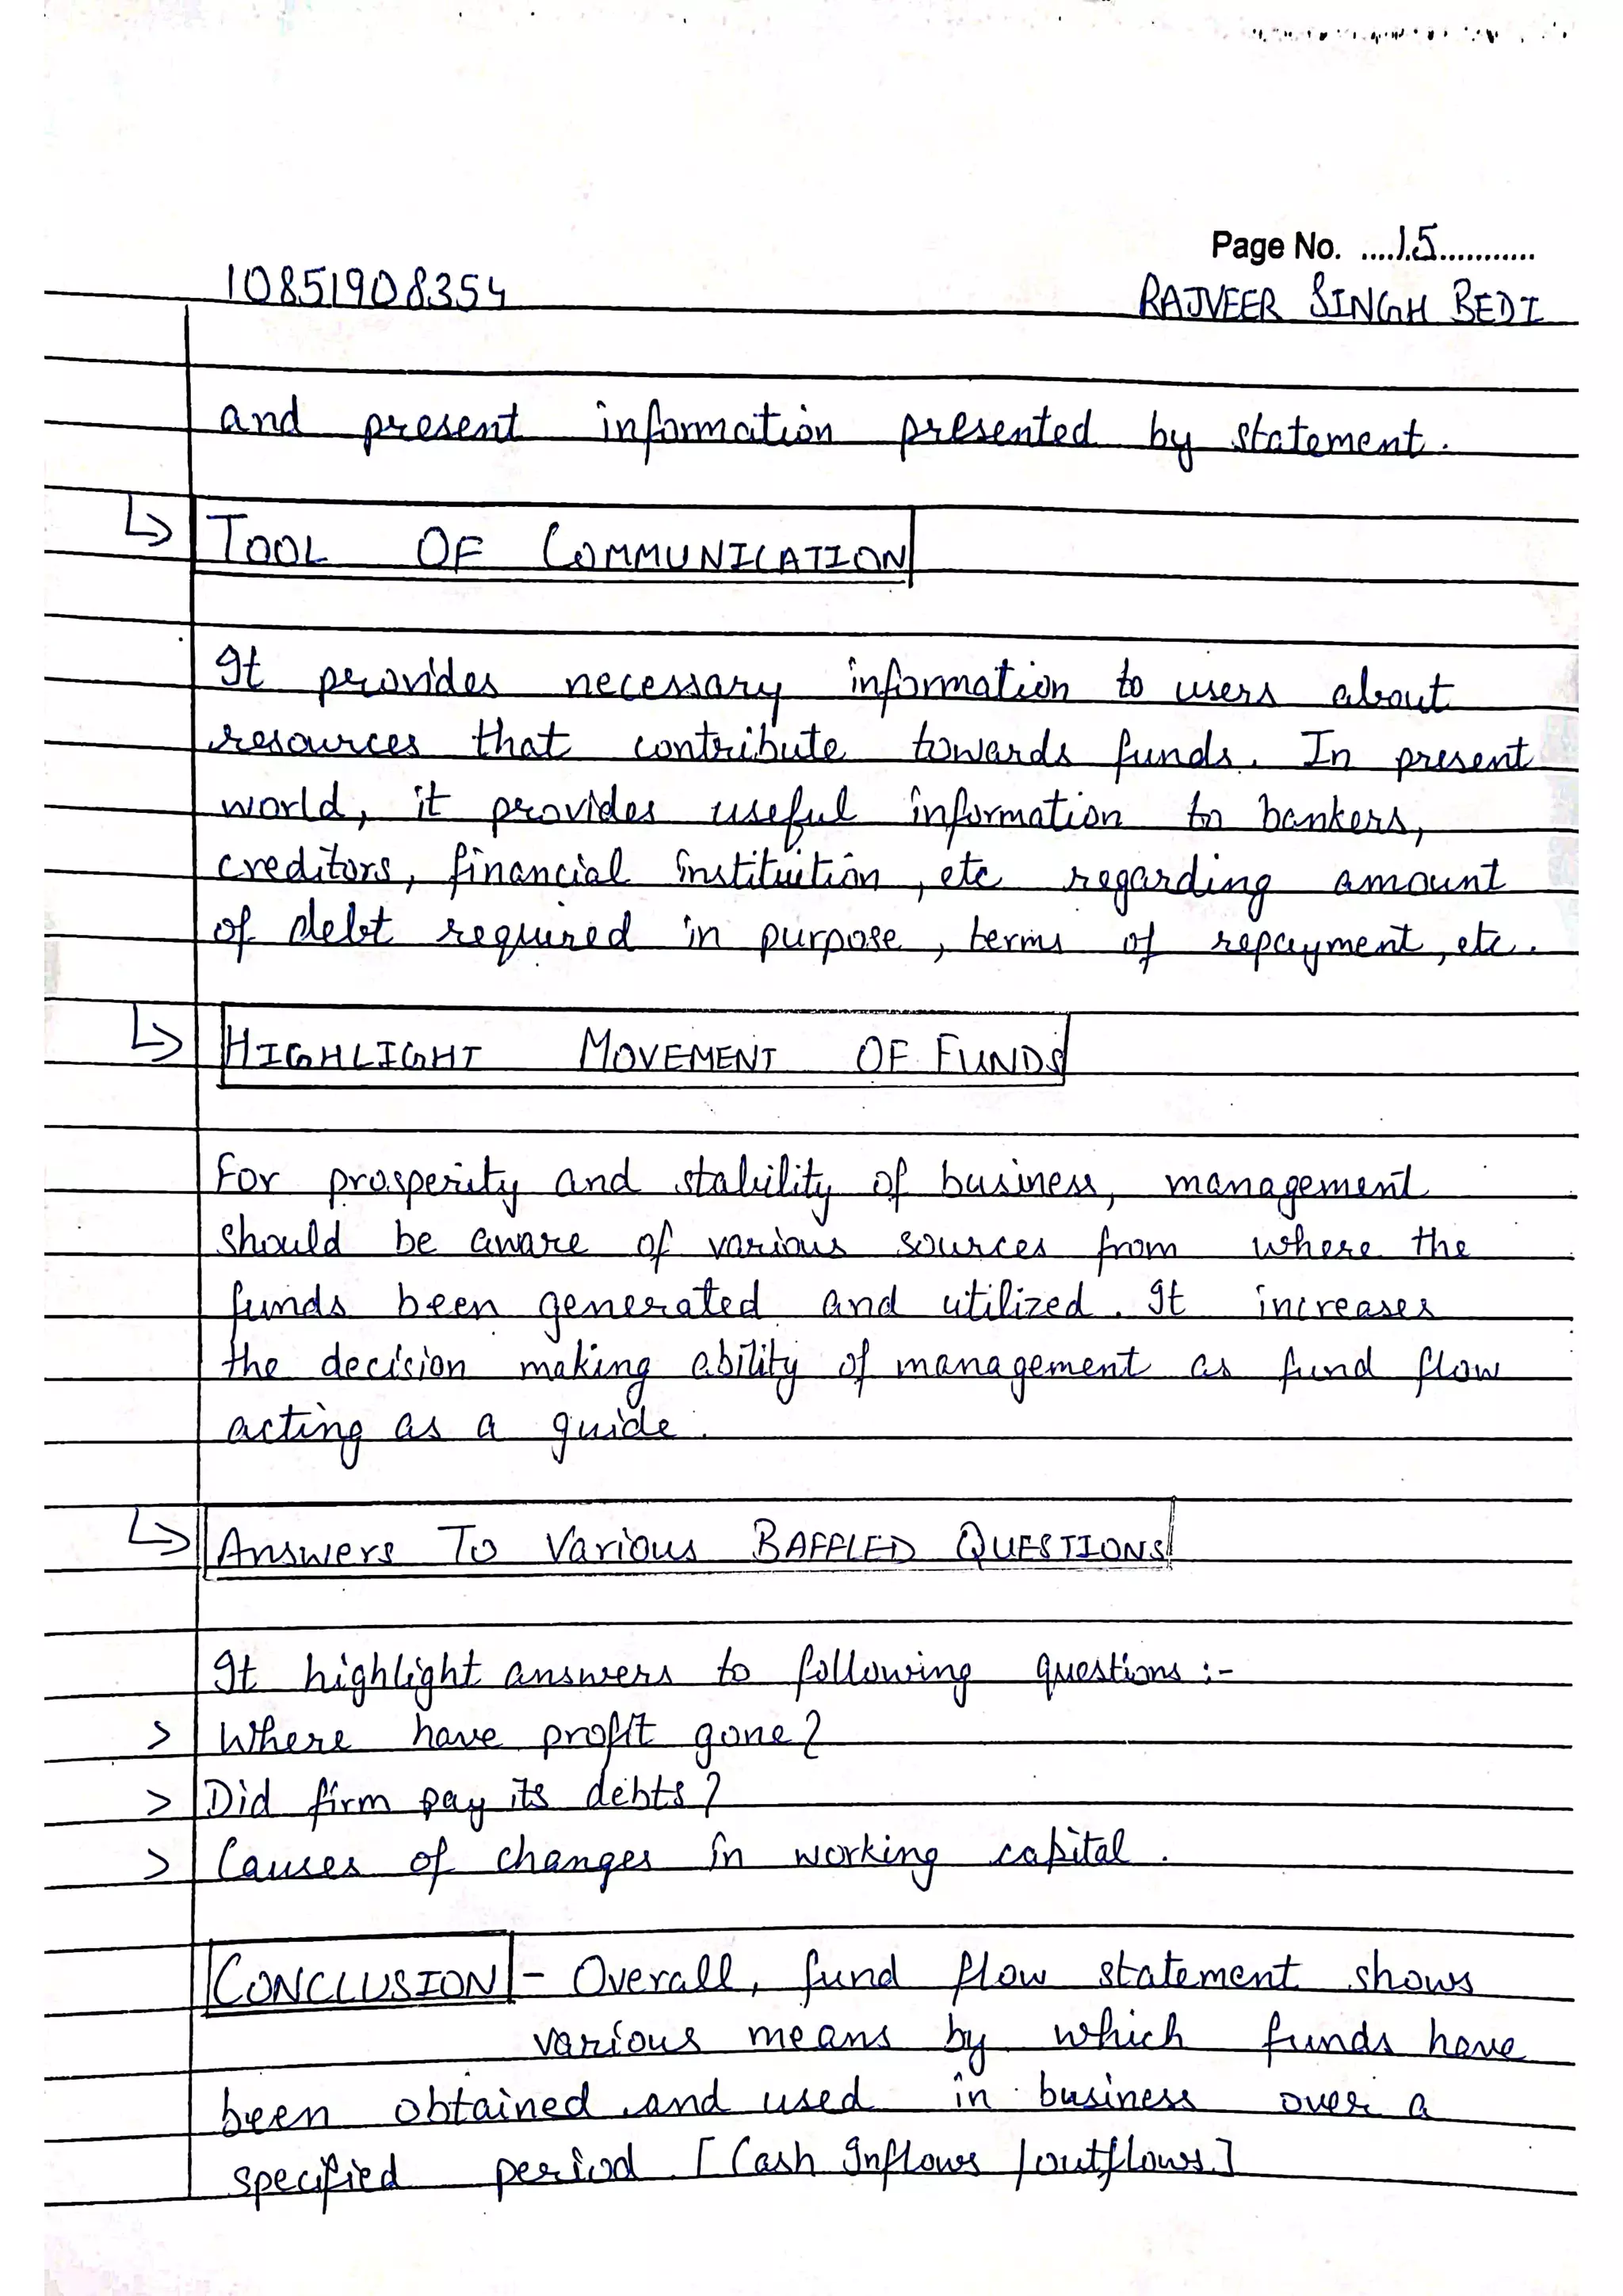 Page No. .....15............
10851908354
RAJVEER SINGH BEDI
and present information presented by statement.
↳ TOOL OF COMMUNICATION
It provides necessary information to users about
resources that contribute towards funds. In present
world, it provides useful information to bankers,
creditors, financial instituition, etc regarding amount
of debt required in purpose, terms of repayment, etc.
↳ HIGHLIGHT MOVEMENT OF FUNDS
For prosperity and stability of business, management
should be aware of various sources from where the
funds been generated and utilized. It increases
the decision making ability of management as fund flow
acting as a guide.
↳ Answers To Various BAFFLED QUESTIONS
It highlight answers to following questions :-
> Where have profit gone?
> Did firm pay its debts?
> Causes of changes in working capital.
CONCLUSION - Overall, fund flow statement shows
various means by which funds have
been obtained and used in business over a
specified period. [Cash Inflows / outflows]